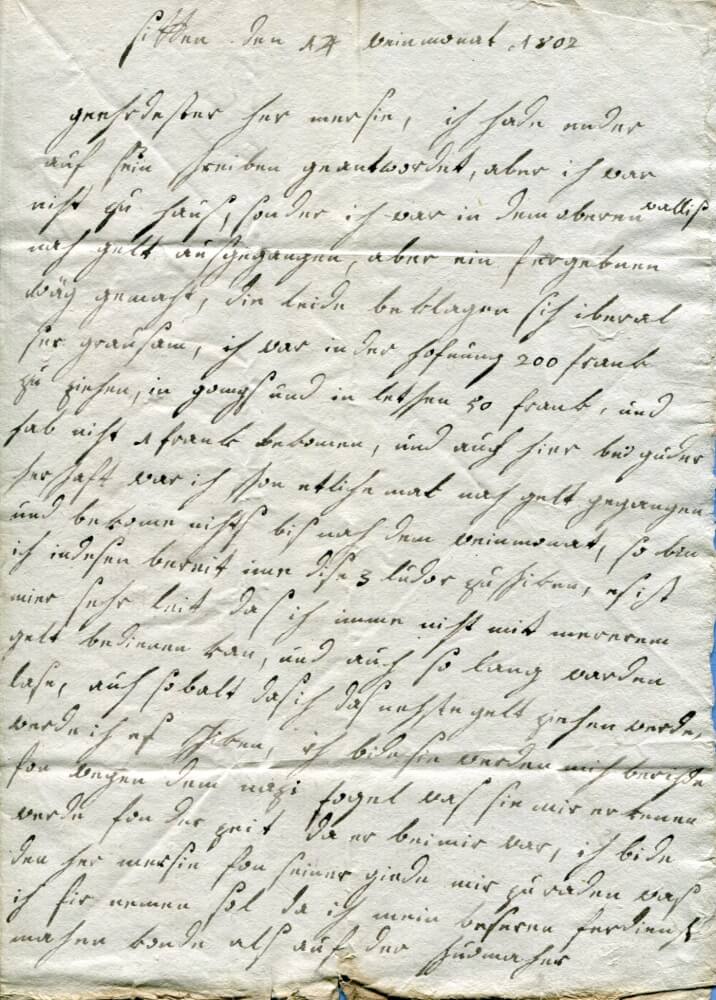 sitten den 14 weinmonat 1802
geehrdester her mersie, ich hade ender
auf sein schreiben geantwordet, aber ich war
nicht zu haus, sonder ich war in dem oberen wallis
nach gelt ausgegangen, aber ein fergebnen
wäg gemacht, die leide beklagen sich iberal
ser grausam, ich war in der hofnung 200 frank
zu ziehen, in goms und in letschen 50 frank, und
hab nicht 1 frank bekomen, und auch hier bei guder
herschaft war ich schon etliche mal nach gelt gegangen
und bekome nichts bis nach dem weinmonat, so bin
ich indesen bereit ime dise 3 ludor zu schiken, es ist
mier sehr leit das ich imme nicht mit mererem
gelt bedienen kan, und auch so lang warden
lase, auch sobalt das ich das nechste gelt ziehen werde,
werde ich es schiken, ich bide sie werden mich berichde
fon wegen dem nazi fogel was sie mir erkenen
werde fon der zeit da er bei mir war, ich bide
den her mersie fon seiner giede mir zu raden was
ich fir nemen sol da ich mein beseren ferdienst
machen konde als auf der hudmacher